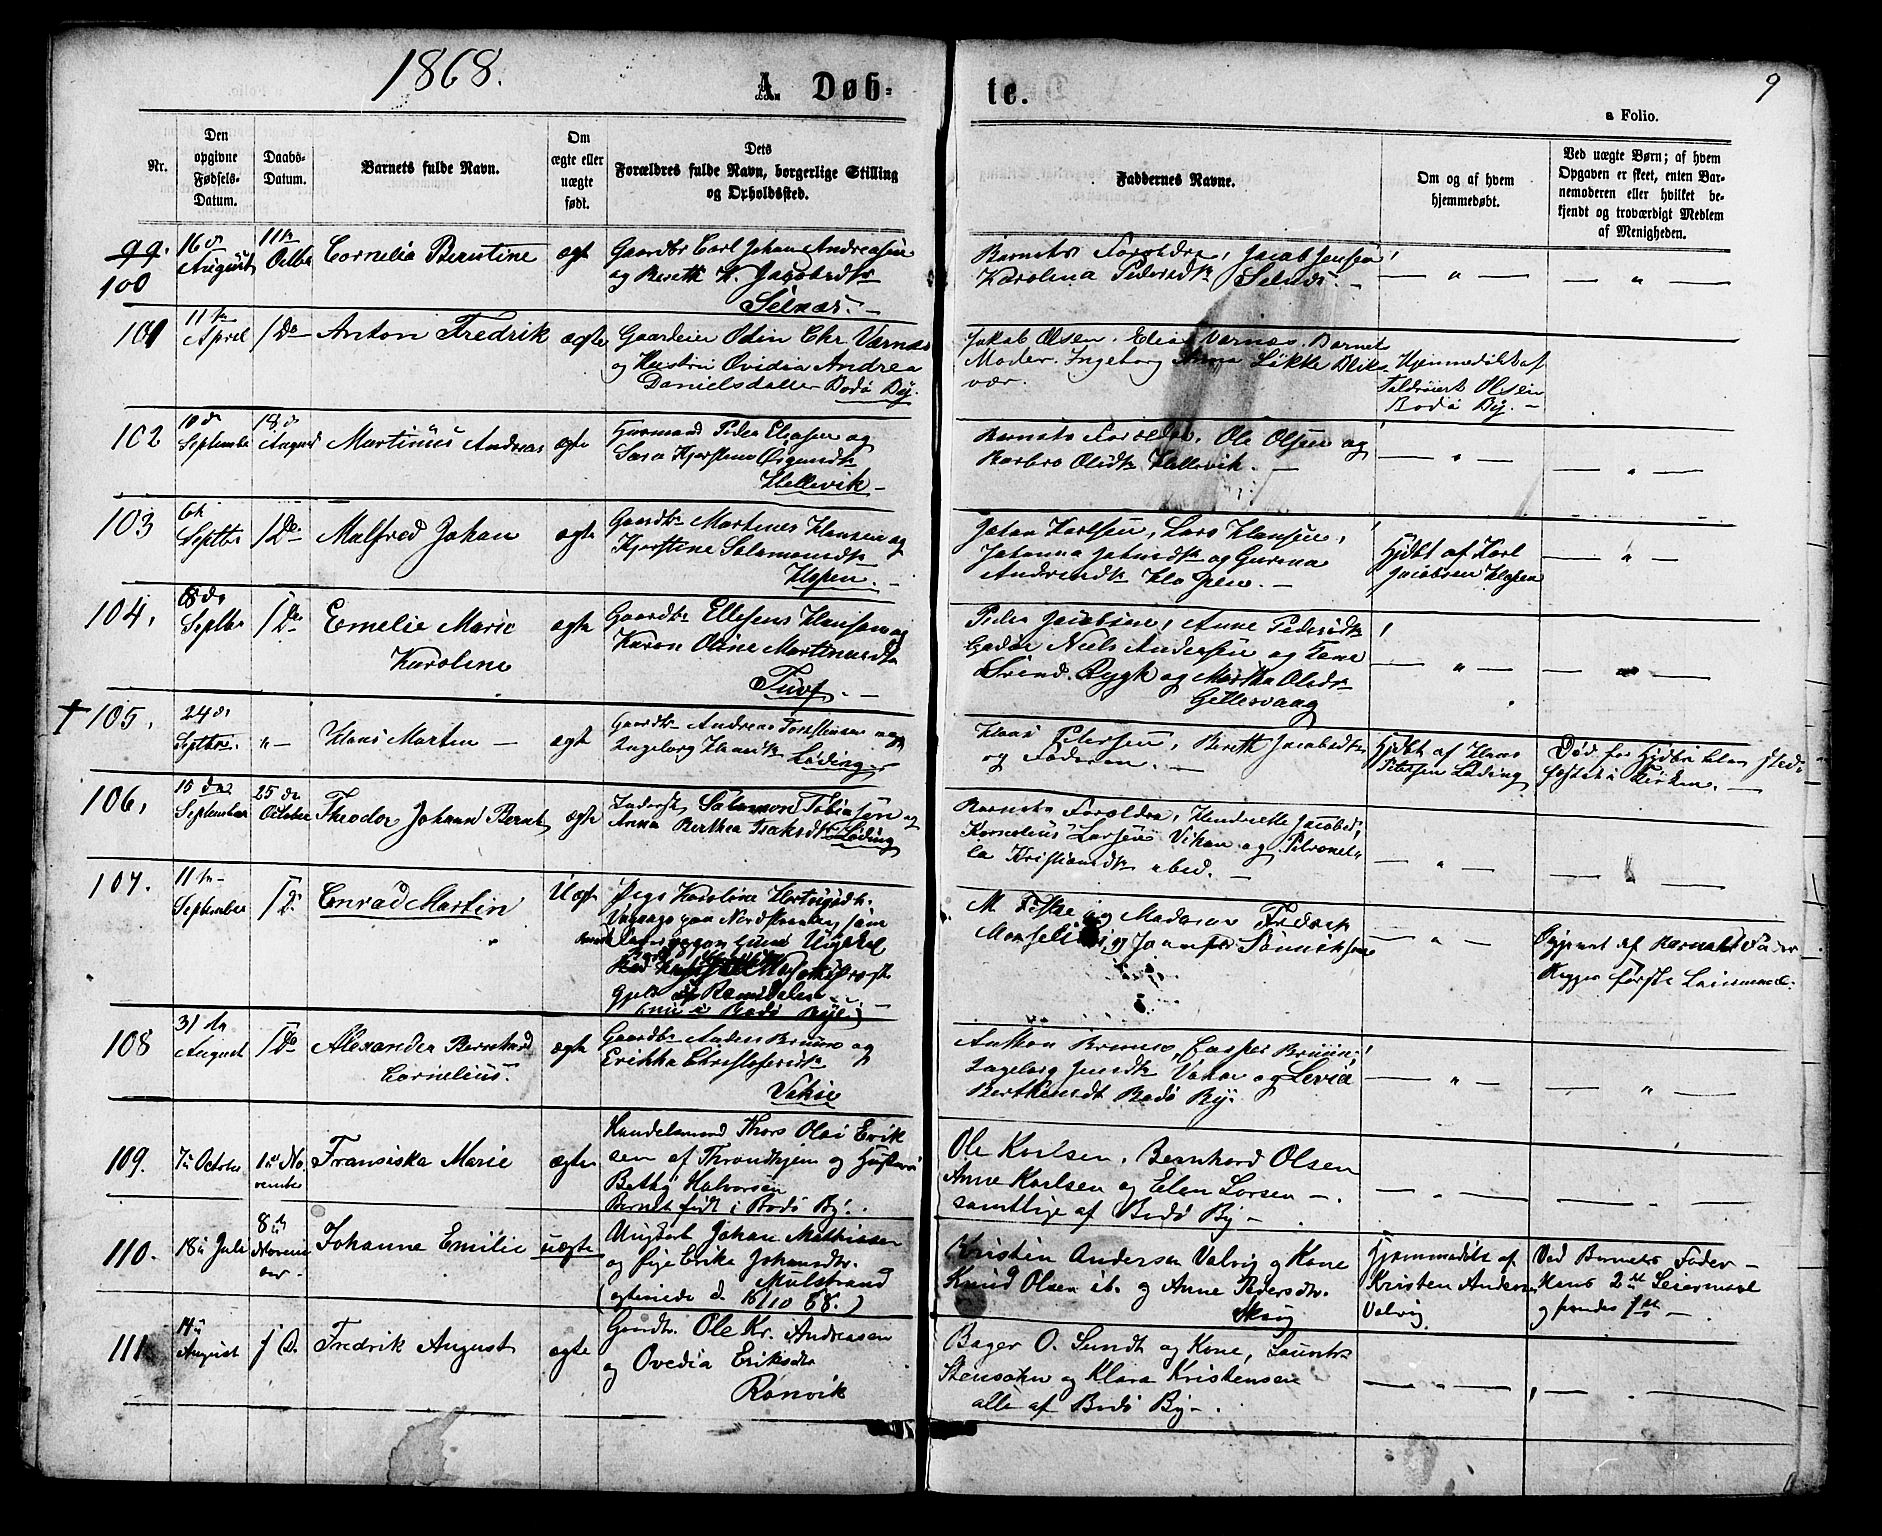 1868.
A. Døb-
te.
9
a Folio.
Nr.
Den
opgivne
Fødsels-
Datum.
Daabs-
Datum.
Barnets fulde Navn.
Om
ægte eller
uægte
født.
Dets
Forældres fulde Navn, borgerlige Stilling
og Opholdssted.
Faddernes Navne.
Om og af hvem
hjemmedøbt.
Ved uægte Børn; af hvem
Opgaven er skeet, enten Bar-
nemoderen eller hvilket be-
kjendt og troværdigt Medlem
af Menigheden.
99.
100
16de
August
11te
Octbr
Cornelia Berntine
ægt
Gaardbr Carl Johan Andreasen
og Bereth K. Jacobsdtr
Selnæs. -
Barnets Forældre, Jacob Jensen
Karolina Pedersdtr Selnæs. -
— " —
— " —
101
11te
April
1 Do
Anton Fredrik
ægte
Gaardeier Odin Chr Værnæs
og Hustru Ovidia Andrea
Danielsdatter Bodø By.
Jakob Olsen. Elias Værnæs. Barnets
Moder. Ingeborg Løkke Bliks-
vær.
Hjemmedøbt af
Olsen
Bodø By. -
102
10de
September
18de
August
Martinus Andreas
ægte
Huusmand Peder Eliasen og
Sara Kjerstina
Hellevik -
Barnets Forældre, Ole Olsen og
Barbro Olsdtr Hellevik. -
— " —
— " —
103
6te
Septbr
1 Do.
Malfred Johan
ægte
Gaardbr Martines Hansen og
Kjerstine Salamonsdtr
Hopen. -
Johan Karlsen, Lars Hansen,
Johanna Johnsdtr og Gurina
Andreasdtr Hopen. -
Hjdbt af Karl
Jacobsen Hopen
— " —
104.
8de
Septbr
1 Do
Emelie Marie
Karoline
ægte
Gaardbr Ellesens Hansen og
Karen Oline Martinusdtr
Tuv. -
Peder Jacobsen, Anne Pedersdtr
Godøe Niels Andersen og Kone
Svend. Rygh og Martha Olsdtr
Gillesvaag
— " —
— " —
† 105.
24de
Septbr.
" -
Hans Morten —
ægte
Gaardbr Andreas Torstensen og
Ingeborg Hansdtr
Løding
Hans Petersen, Bereth Jacobsdtr
og Faderen. -
Hjdbt af Hans
Petersen Løding
Død før
Kirken. -
106.
15de
September
25de
October
Theodor Johand Bernt
ægte
Inderst Salamon Tobiasen og
Anna Berthea Isaksdtr Løding
Barnets Forældre, Hendrikke Jacobsd,
Kornelius Larsen Vikan og Petronel-
la Kristiansdtr ibid. -
— " —
—
107.
11te
September
1 D.
Conrad Martin
Uægt
Pige Karoline
og Ungkarl
Gjeld Romsdalen
Bodø By
M Fiske og Madam Fredrik
— " —
Opgivet af Barnets Fader
Begges første Leiermaal.
108
31te
August
1 Do
Alexander Bernhard
Cornelius.
ægte
Gaardbr Anders Bruun og
Erikka Christofersdtr
Vikan
Anthon Bruun, Casper Bruun,
Ingeborg Jensdtr Vikan og Levia
Berthensdt Bodø By.
— " —
— " —
109.
7de October
1ste No
vember
Fransiska Marie
ægte
Handelsmand Thors Olai Erik
sen af Throndhjem og Hustru
Bethy Halvorsen
Barnet født i Bodø By.
Ole Karlsen, Bernhard Olsen
Anne Karlsen og Elen Larsen -.
samtlige af Bodø By -
— " —
— . —
110.
18de Juli
8de
Novem
ber -
Johanne Emilie
uægte
Ungkarl Johan Mathiasen
og Pige Erika Johansdtr.
Mulstrand
(ægteviede d. 18/10 68.)
Kristen Andersen Valvig og Kone
Knud Olsen ib. og Anne Pedersdtr.
Skoug
Hjemmedøbt af
Kristen Andersen
Valvig.
Ved Barnets Fader -
Hans 2det Leiermaal
og hendes 1ste -
111
14de
August
1 D.
Fredrik August
ægte
Gaardbr. Ole Kr. Andreasen
og Ovedia Eriksdtr
Rønvik
Bager O. Sundt og Kone, Lauritz
Stensohn og Klara Kristensen
alle af Bodø By -.
— " —
— . —